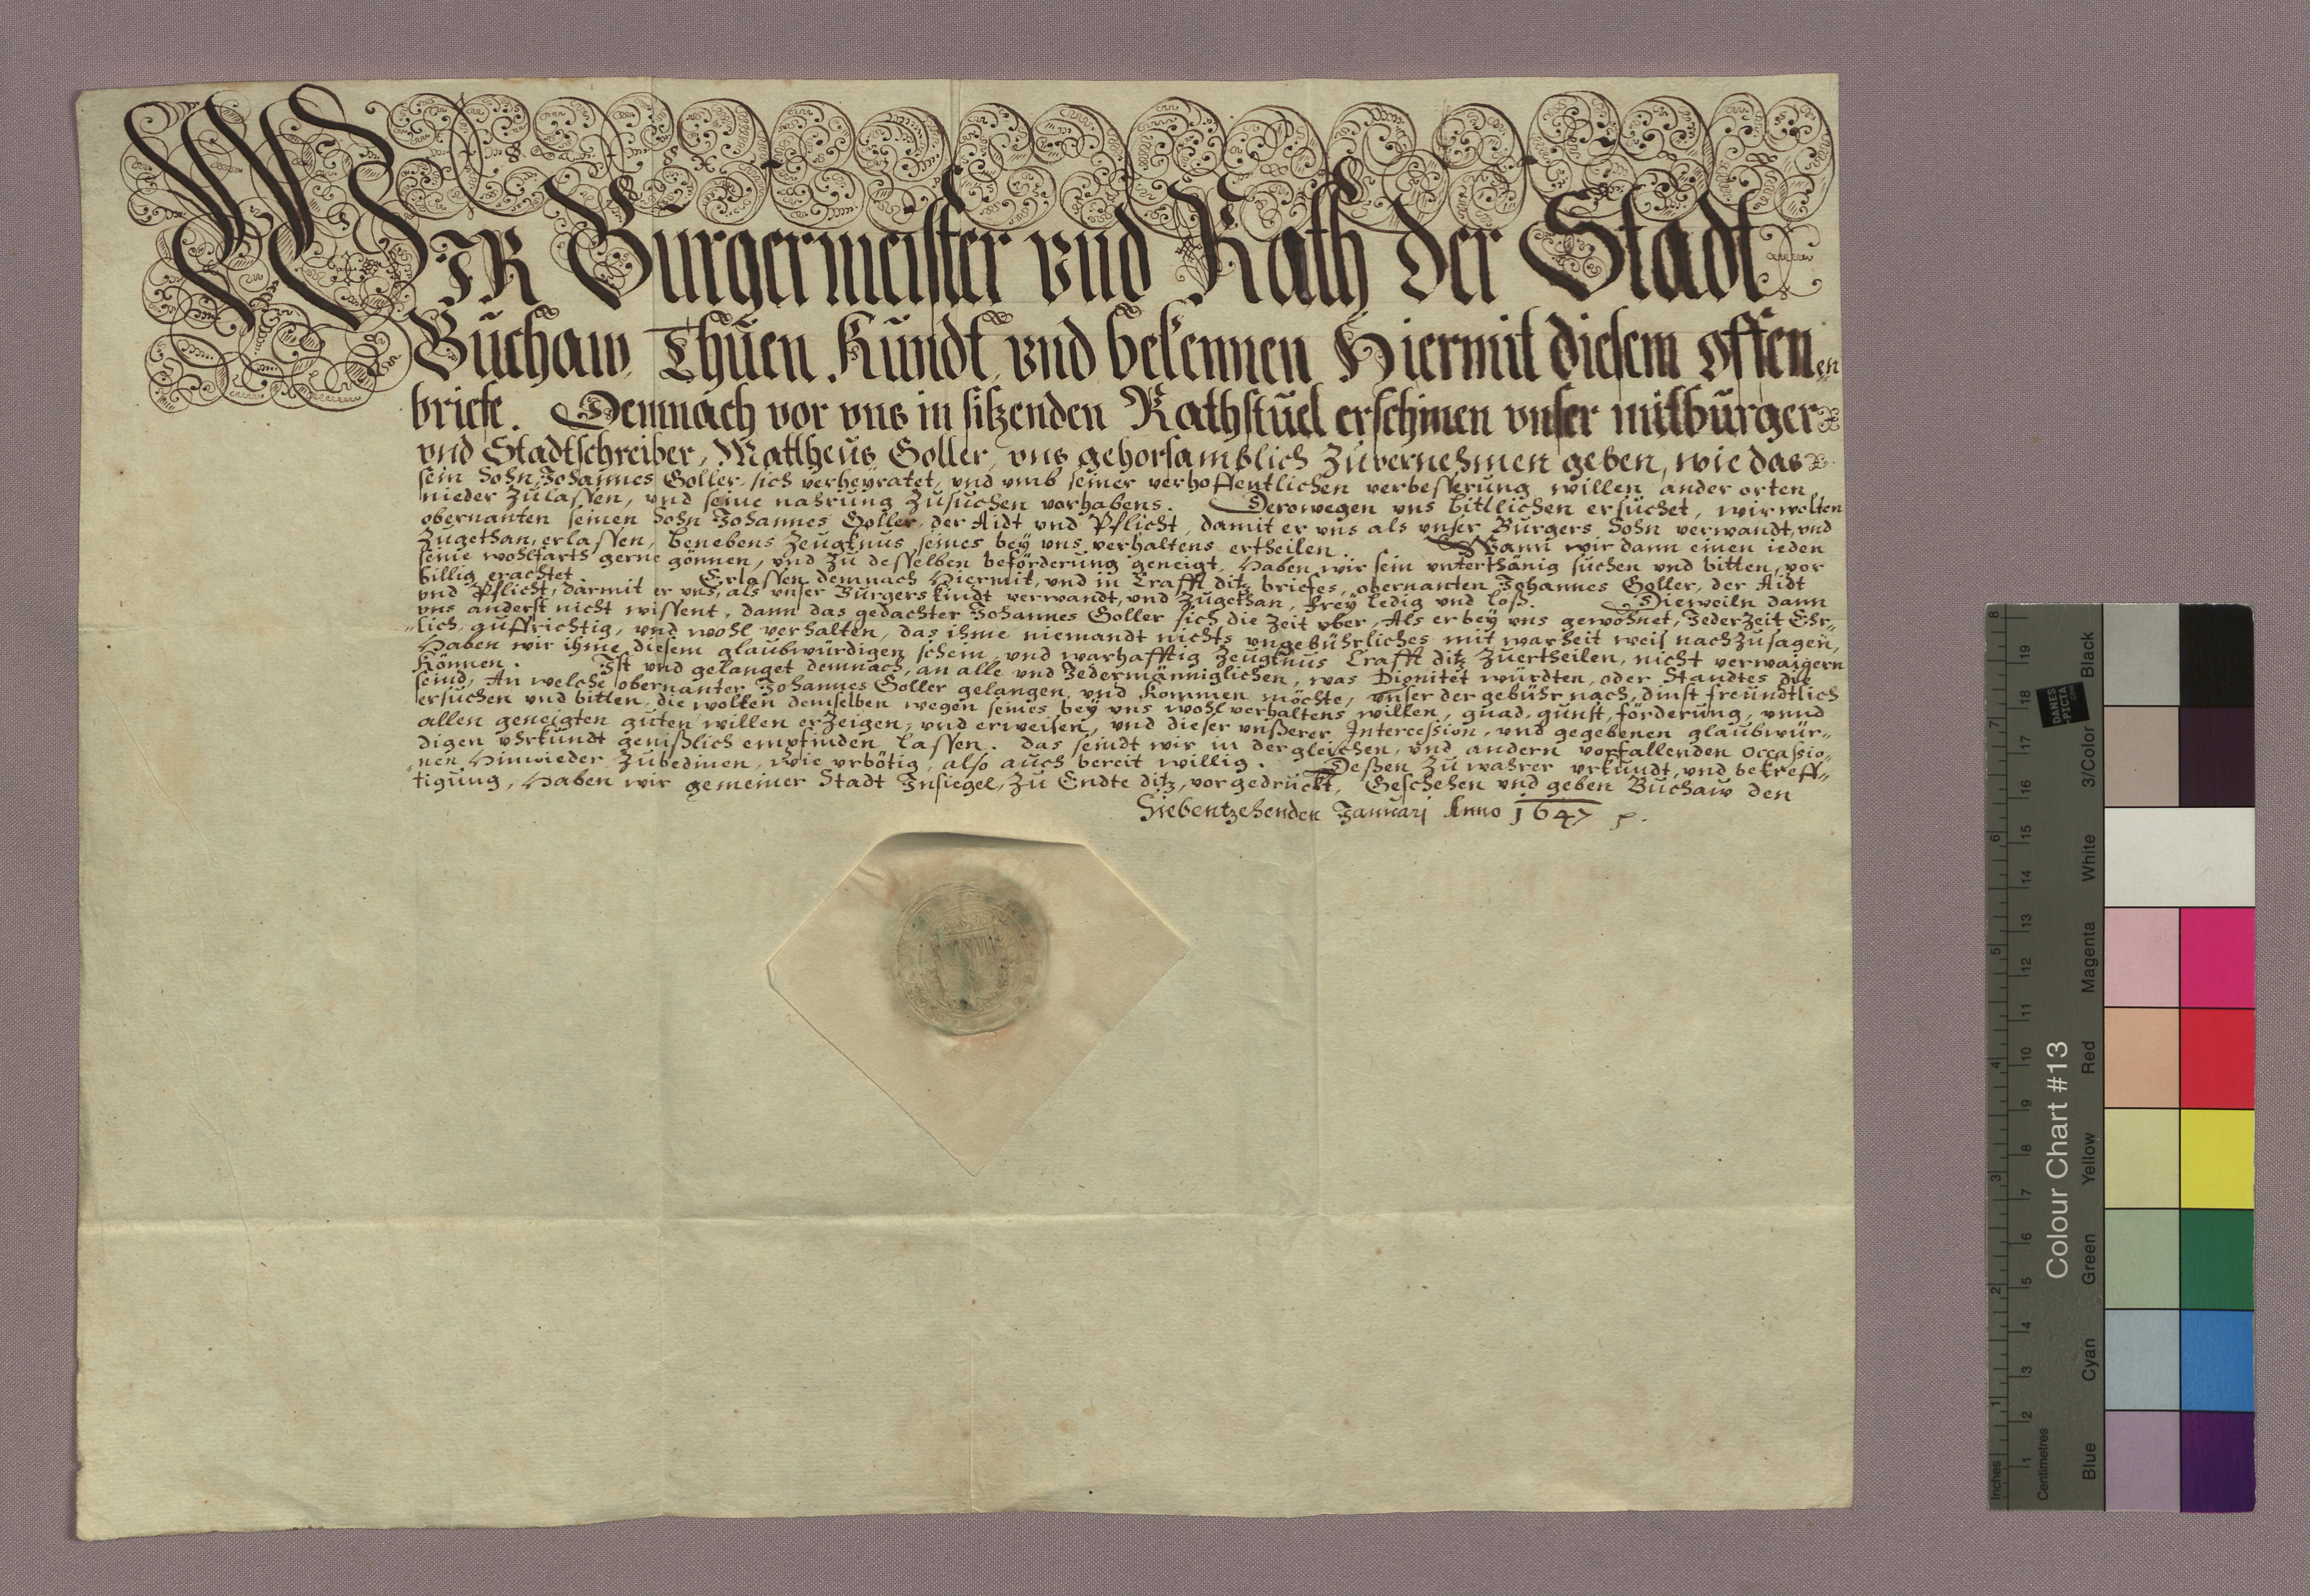 WIR Bürgermeister vnd Rath der Stadt
Buchaw, Thuen Kundt, vnd bekennen Hiermit diesem offen„
en
briefe. Demnach vor vns in sitzenden Rathstuel erschinen vnser mitbürger
vnd Stadtschreiber, Mattheus Goller, vns gehorsamblich Zuvernehmen geben, wie das
sein Sohn Johannes Goller, sich verheyratet, vnd vmb seiner verhoffentlichen verbesserung willen ander orten
nieder Zulassen, vnd seine nahrung Zusuchen vorhabens. Derowegen vns bittlichen ersuchet, wir wolten
obernanten seinen Sohn Johannes Goller, der Aidt vnd Pflicht, damit er vns als vnser Burgers Sohn verwandt, vnd
Zugethan, erlassen, benebens Zeugknus seines bey vns verhaltens ertheilen. Wann wir dann einen ieden
seine wohlfarth gerne gönnen, vnd zu desselben beförderung geneigt, Haben wir sein vnterthänig suchen vnd bitten, vor
billig erachtet. Erlassen demnach Hiermit, vnd in Crafft ditz briefes, obernanten Johannes Goller, der Aidt
vnd Pflicht, darmit er vns, als vnser Burgerskindt verwandt, vnd Zugethan, frey ledig vnd loß. Dieweiln dann
vns anderst nicht wissent, dann das gedachter Johannes Goller sich die Zeit vber, Als er bey vns gewohnet, Jederzeit Ehr„
„lich, auffrichtig, vnd wohl verhalten, das ihme niemandt nichts vngebührliches mit warheit weis nachzusagen,
Haben wir ihme diesem glaubwürdigen schein, vnd warhafftig Zeugknus Crafft ditz Zuertheilen, nicht verwaigern
Können. Ist vnd gelanget demnach, an alle vnd Jedermänniglichen, was Dignitet würdten, oder Standtes die
seind, An welche obernanter Johannes Goller gelangen, vnd Kommen möchte, vnser der gebühr nach, dinst freundtlich
ersuchen vnd bitten, die wolten demselben wegen seines bey vns wohlverhaltens willen, gnad, gunst, förderung, vnnd
allen geneigten guten willen erzeigen, vnd erweisen, vnd dieser vnßerer Intercession, vnd gegebenen glaubwür„
digen vhrkundt genißlich empfinden lassen. das seindt wir in dergleichen, vnd andern vorfallenden Occassio„
„nen Hinwieder Zubedinen, wie vrbötig, also auch bereit willig. Deßen Zu wahrer vrkundt, vnd bekreff„
tigung, Haben wir gemeiner Stadt Insiegel, Zu Endte ditz, vorgedruckt, Geschehen vnd geben Buchaw den
Siebentzehenden Januarj Anno 1647
Inches
Centimetres
1 2 3 4 5 6 7 8
1 2 3 4 5 6 7 8 9 10 11 12 13 14 15 16 17 18 19
Colour Chart #13
DANES
-PICTA
.COM
Blue Cyan Green Yellow Red Magenta White 3/Color Black